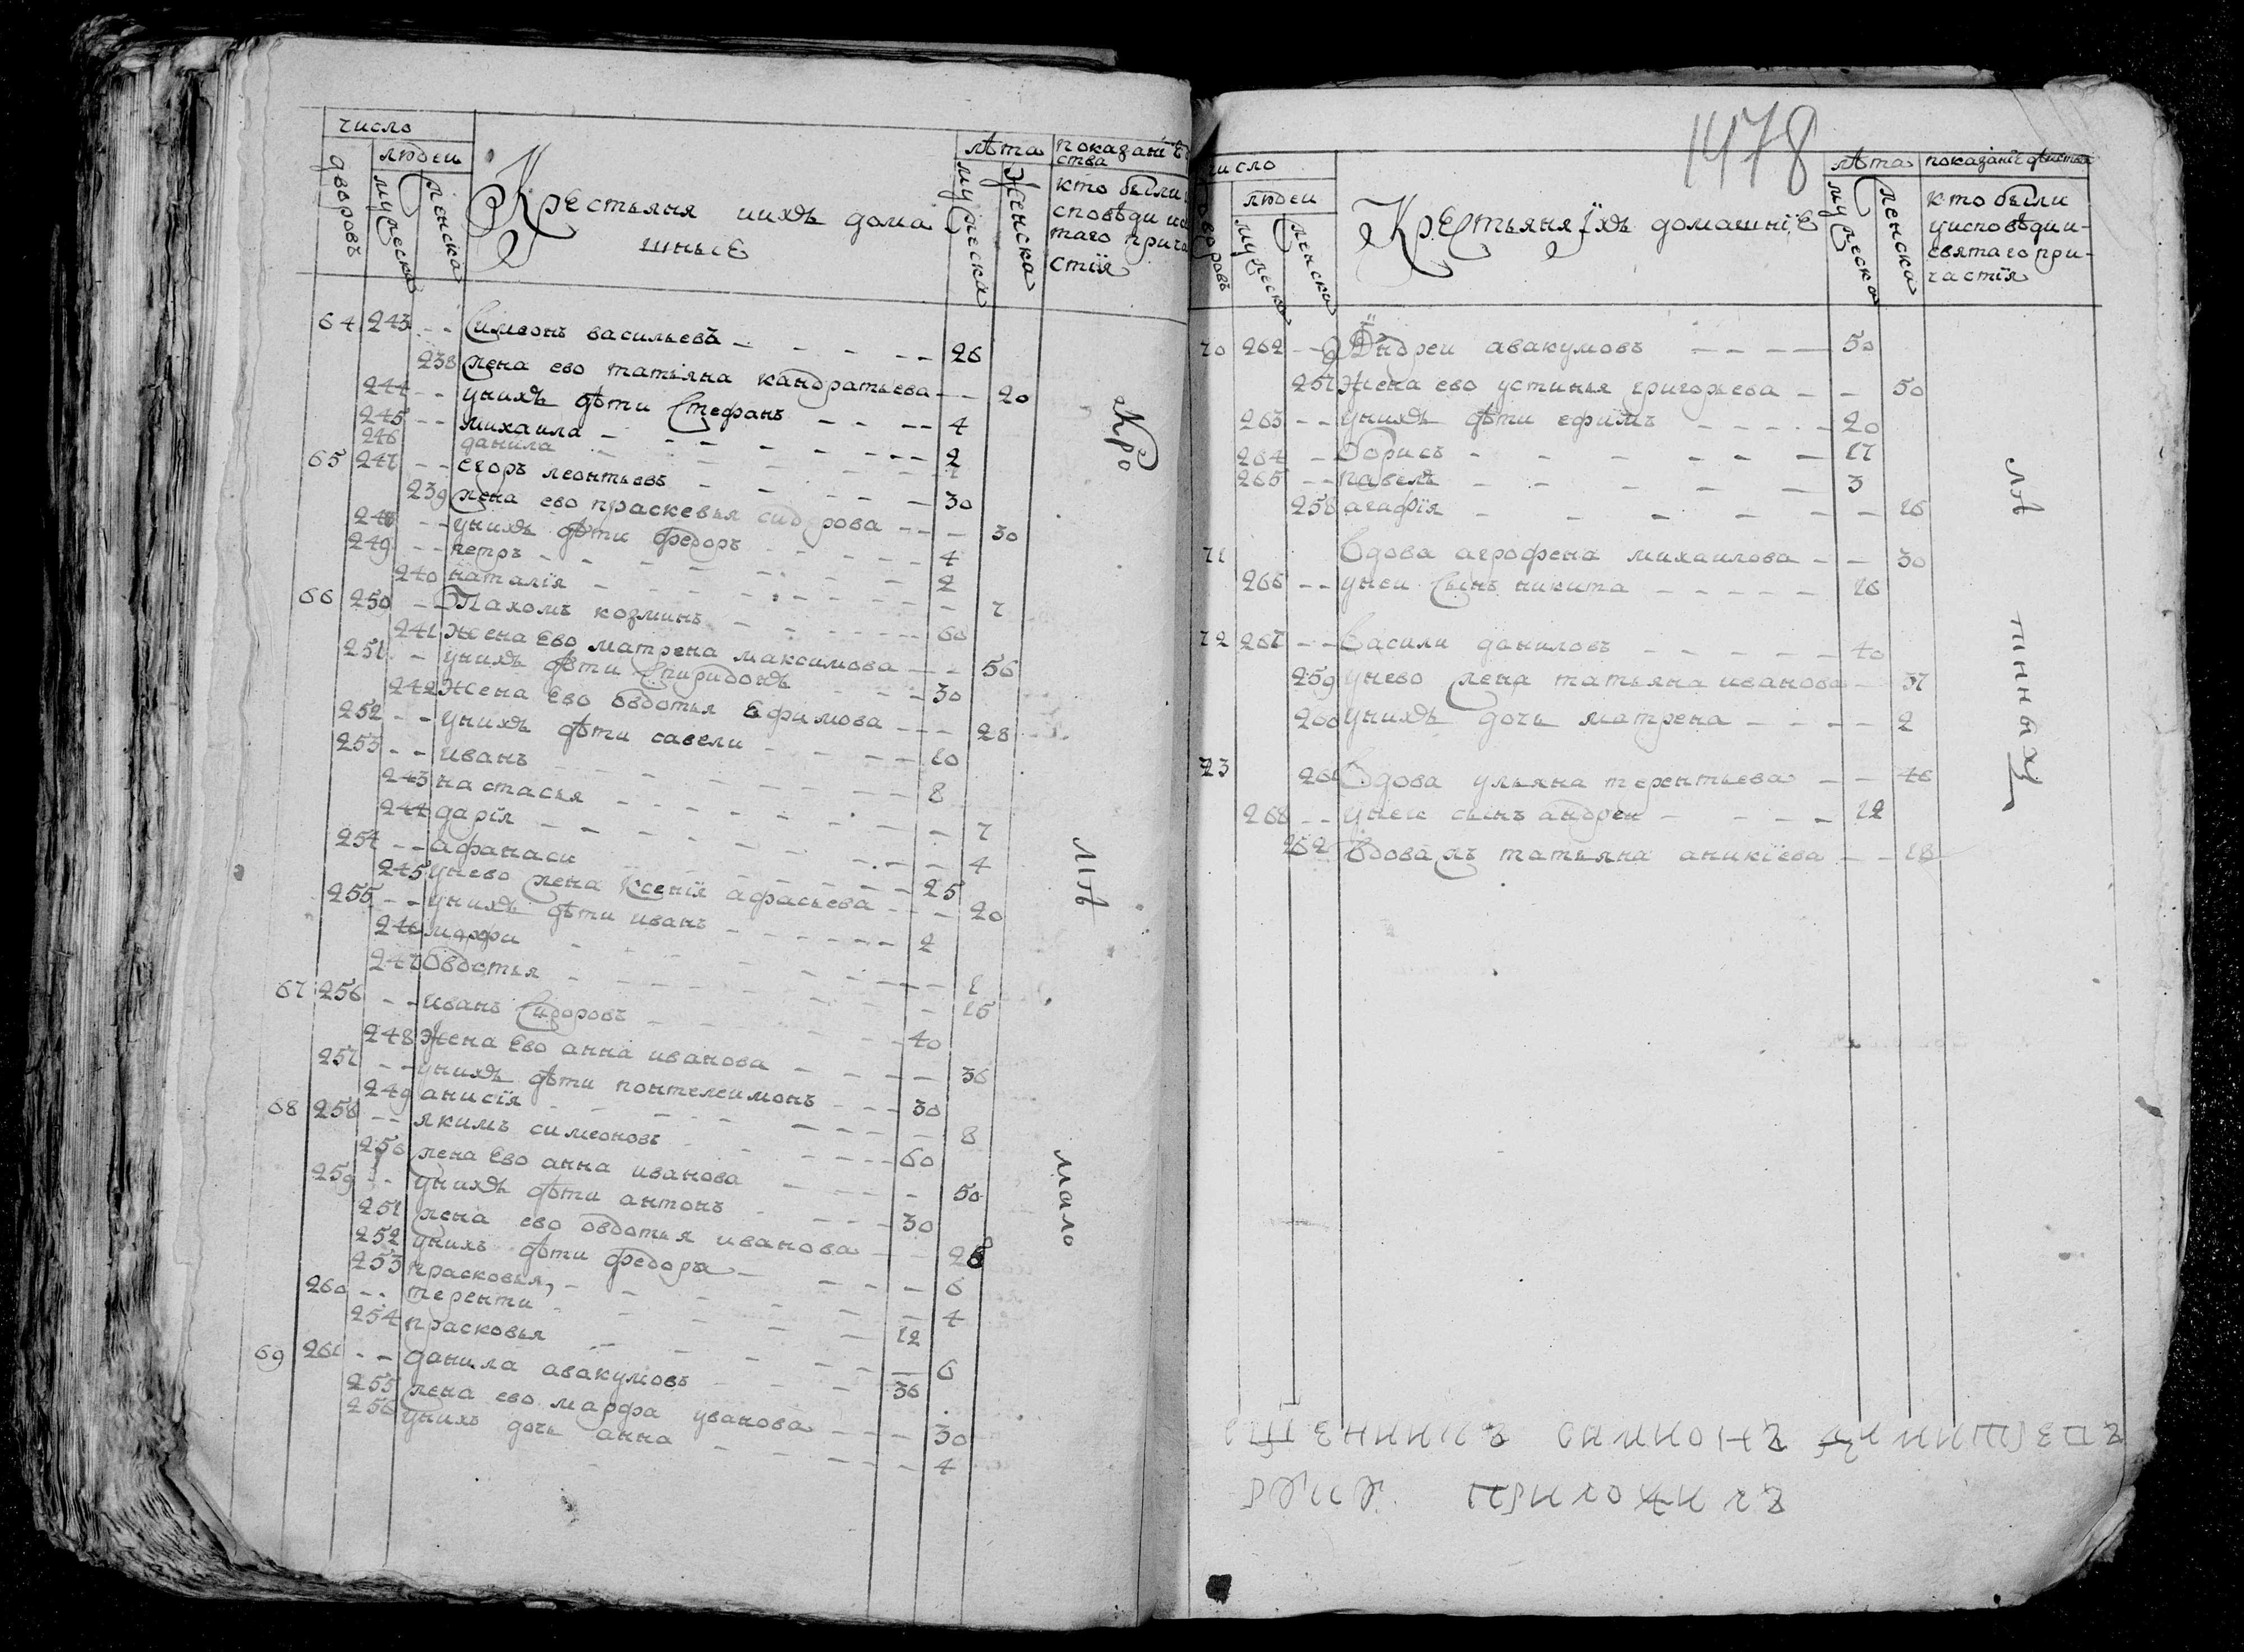 число
людеи
дворовъ
мужеска
женска
Крестьяня иихъ дома
шньіе
лѣта
мужеска
женска
показаниѣ
ства
кто были
споведи
таго прича
стїя
64 243 -- Симеонъ васильевъ - - - -- 26
238 жена ево татьяна кандратьева -- - 20
244 -- унихъ дѣти Стефанъ - - -- 4
245 -- михаила - - - - - -- 2
246 данила
65 247 -- егоръ леонтьевъ - - - - - 30
239 жена ево праскевья сидорова -- - 30
248 -- унихъ дѣти федоръ - - - - 4
249 -- петръ - - - - - - 2
240 наталїя - - - - - - 7
66 250 -- Пахомъ козминъ - - - - - 60
241 Жена Ево матрена максимова - - 56
251 - унихъ дѣти Спиридонъ - - - 30
242 Жена Ево Овдотья Ефимова - - - 28
252 -- унихъ дѣти савели - - - - 10
253 -- иванъ - - - - - - 8
243 настасья - - - - - - 7
244 дарїя - - - - - - 4
254 -- афанаси - - - - - 25
245 унево жена Ксенїя афасьева - - - 20
255 -- унихъ дѣти иванъ - - - - - 2
246 марфи - - - - - - 1
247 Овдотья - - - - - - 15
67 256 -- иванъ Сидоровъ - - - - - 40
248 Жена Ево анна иванова - - - - 36
257 -- унихъ дѣти понтелеимонъ - - - 30
249 анисїя - - - - - - 8
68 258 -- якимъ симеоновъ - - - - - 60
250 жена Ево анна иванова - - - - 50
259 -- унихъ дѣти антонъ - - - - 30
251 жена ево овдотья иванова - - 28
252 унихъ дѣти федора - - - - 6
253 прасковья, - - - - - 4
260 -- теренти - - - - - 12
254 прасковья - - - - - 6
69 261 -- данила авакумовъ - - - - 36
255 жена ево марфа уванова - - - 30
256 унихъ дочь анна - - - - 4
Кро
мѣ
мало
1478
число
людеи
мужеска
женска
Крестьяня їхъ домашнїе
лѣта
мужеска
женска
показанїе
кто были
уисповѣдии-
святаго при-
частїя
70 262 -- Андреи авакумовъ - - - - 50
257 Жена ево устинья григорьева - - 50
263 -- унихъ дѣти ефимъ - - - - 20
264 - Борисъ - - - - - - 17
265 -- павелъ - - - - - 3
258 агафїя - - - - - - 16
71 Вдова агрофена михаилова - - 30
266 -- унеи Сынъ никита - - - - - 16
72 267 -- Васили даниловъ - - - - - 40
259 унево жена татьяна иванова - 37
260 унихъ дочь матрена - - - - 2
73 261 Вдова ульяна терентьева - - 46
268 -- унеи сынъ андреи - - - - 12
262 Вдова жъ татьяна аникїева - - 18
лѣ
тныхъ